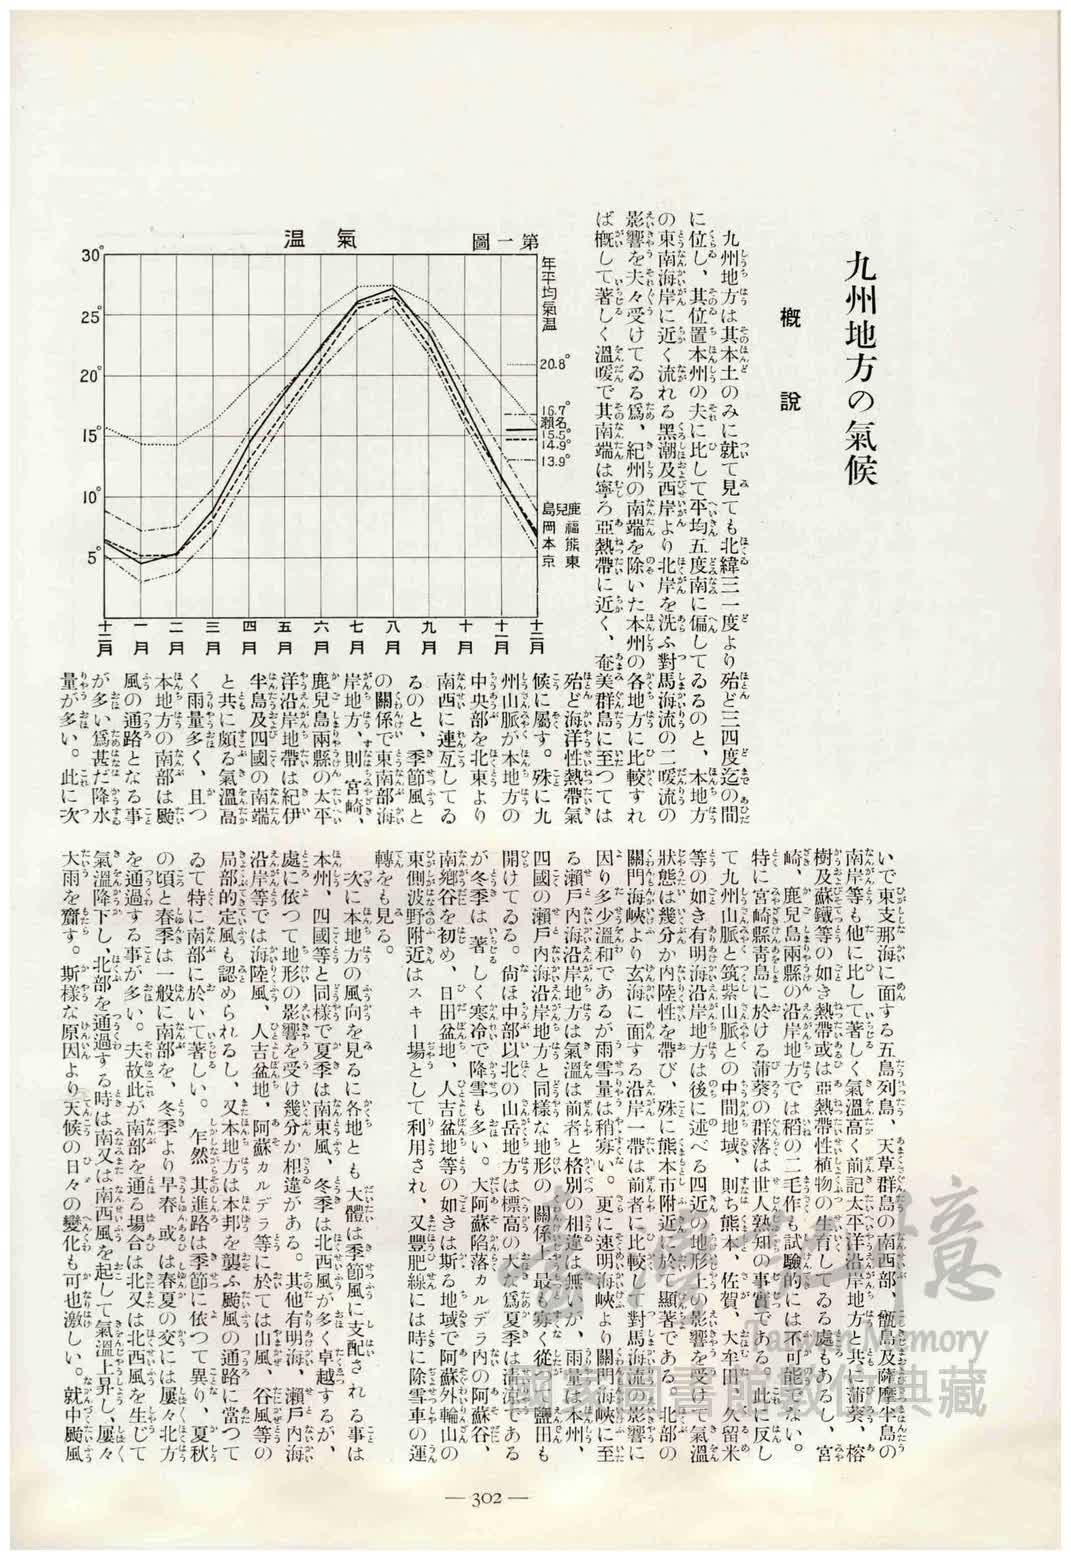 九州地方の氣候
概說
九州地方は其本土のみに就て見ても北緯三一度より殆ど三四度迄の間
に位し、其位置本州の夫に比して平均五度南に偏してゐるのと、本地方
の東南海岸に近く流れる黑潮及西岸より北岸を洗ふ對馬海流の二暖流の
影響を夫々受けてゐる爲、紀州の南端を除いた本州の各地方に比較すれ
ば槪して著しく溫暖で其南端は寧ろ亞熱帶に近く、奄美群島に至つては
殆ど海洋性熱帶氣
候に屬す。殊に九
州山脈が本地方の
中央部を北東より
南西に連亙してゐ
るのと、季節風と
の關係で東南部海
岸地方、則ち宮崎、
鹿兒島兩縣の太平
洋沿岸地帶は紀伊
半島及四國の南端
と共に頗る氣溫高
く雨量多く、且つ
本地方の南部は颱
風の通路となる事
が多い爲甚だ降水
量が多い。此に次
第一圖
氣溫
年平均氣溫
30°
25°
20°
15°
10°
5°
20.8°
16.7°
瀨名
15.5°
14.9°
13.9°
鹿兒島
福岡
熊本
東京
十二月
一月
二月
三月
四月
五月
六月
七月
八月
九月
十月
十一月
十二月
いで東支那海に面する五島列島、天草群島の南西部、甑島及薩摩半島の
南岸等も他に比して著しく氣溫高く前記太平洋沿岸地方と共に蒲葵、榕
樹及蘇鐵等の如き熱帶或は亞熱帶性植物の生育してゐる處もあるし、宮
崎、鹿兒島兩縣の沿岸地方では稻の二毛作も試驗的には不可能でない。
特に宮崎縣靑島に於ける蒲葵の群落は世人熟知の事實である。此に反し
て九州山脈と筑紫山脈との中間地域、則ち熊本、佐賀、大牟田、久留米
等の如き有明海沿岸地方は後に述べる四近の地形上の影響を受けて氣溫
狀態は幾分か內陸性を帶び、殊に熊本市附近に於て顯著である。北部の
關門海峽より玄海に面する沿岸一帶は前者に比較し對馬海流の影響に
因り多少溫和であるが雨雪量は稍寡い。更に速明海峽より關門海峽に至
る瀨戶內海沿岸地方は氣溫は前者と格別の相違は無いが、雨量は本州、
四國の瀨戶內海沿岸地方と同樣な地形の關係上、最も寡く從て鹽田も
開けてゐる。尙ほ中部以北の山岳地方は標高の大な爲夏季は淸涼である
が冬季は著しく寒冷で降雪も多い。大阿蘇陷落カルデラ內の阿蘇谷、
南鄕谷を初め、日田盆地、人吉盆地等の如きは斯る地域で阿蘇外輪山の
東側波野附近はスキー場として利用され、又豐肥線には時に除雪車の運
轉をも見る。
次に本地方の風向を見るに各地とも大體は季節風に支配される事は
本州、四國等と同樣で夏季は南東風、冬季は北西風が多く卓越するが、
處に依つて地形の影響を受け幾分か相違がある。其他有明海、瀨戶內海
沿岸等では海陸風、人吉盆地、阿蘇カルデラ等に於ては山風、谷風等の
局部的定風も認められるし、又本地方は本邦を襲ふ颱風の通路に當つて
ゐて特に南部に於いて著しい。乍然其進路は季節に依つて異り、夏秋
の頃と春季は一般に南部を、冬季より早春或は春夏の交には屢々北方
を通過する事が多い。夫故此が南部を通る場合は北又は北西風を生じて
氣溫降下し、北部を通過する時は南又は南西風を起して氣溫上昇し、屢々
大雨を齎す。斯樣な原因より天候の日々の變化も可也激しい。就中颱風
— 302 —
臺灣記憶
Taiwan Memory
國家圖書館數位典藏